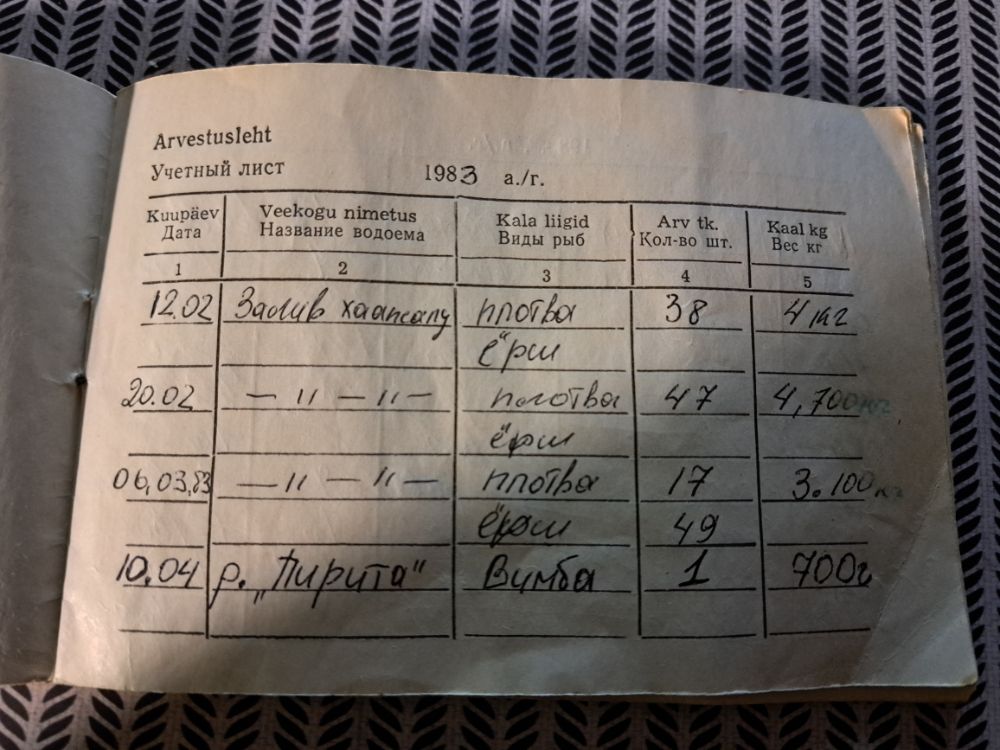 Arvestusleht
Учетный лист 1983 а./г.
Kuupäev Veekogu nimetus Kala liigid Arv tk. Kaal kg
Дата Название водоема Виды рыб Кол-во шт. Вес кг
1 2 3 4 5
12.02 Залив хаапсалу плотва 38 4 кг
ёрш
20.02 — 〃 — 〃 — плотва 47 4,700 кг
ёрш
06.03.83 — 〃 — 〃 — плотва 17 3.100 кг
ёрш 49
10.04 р. „Пирита“ Вимба 1 700г